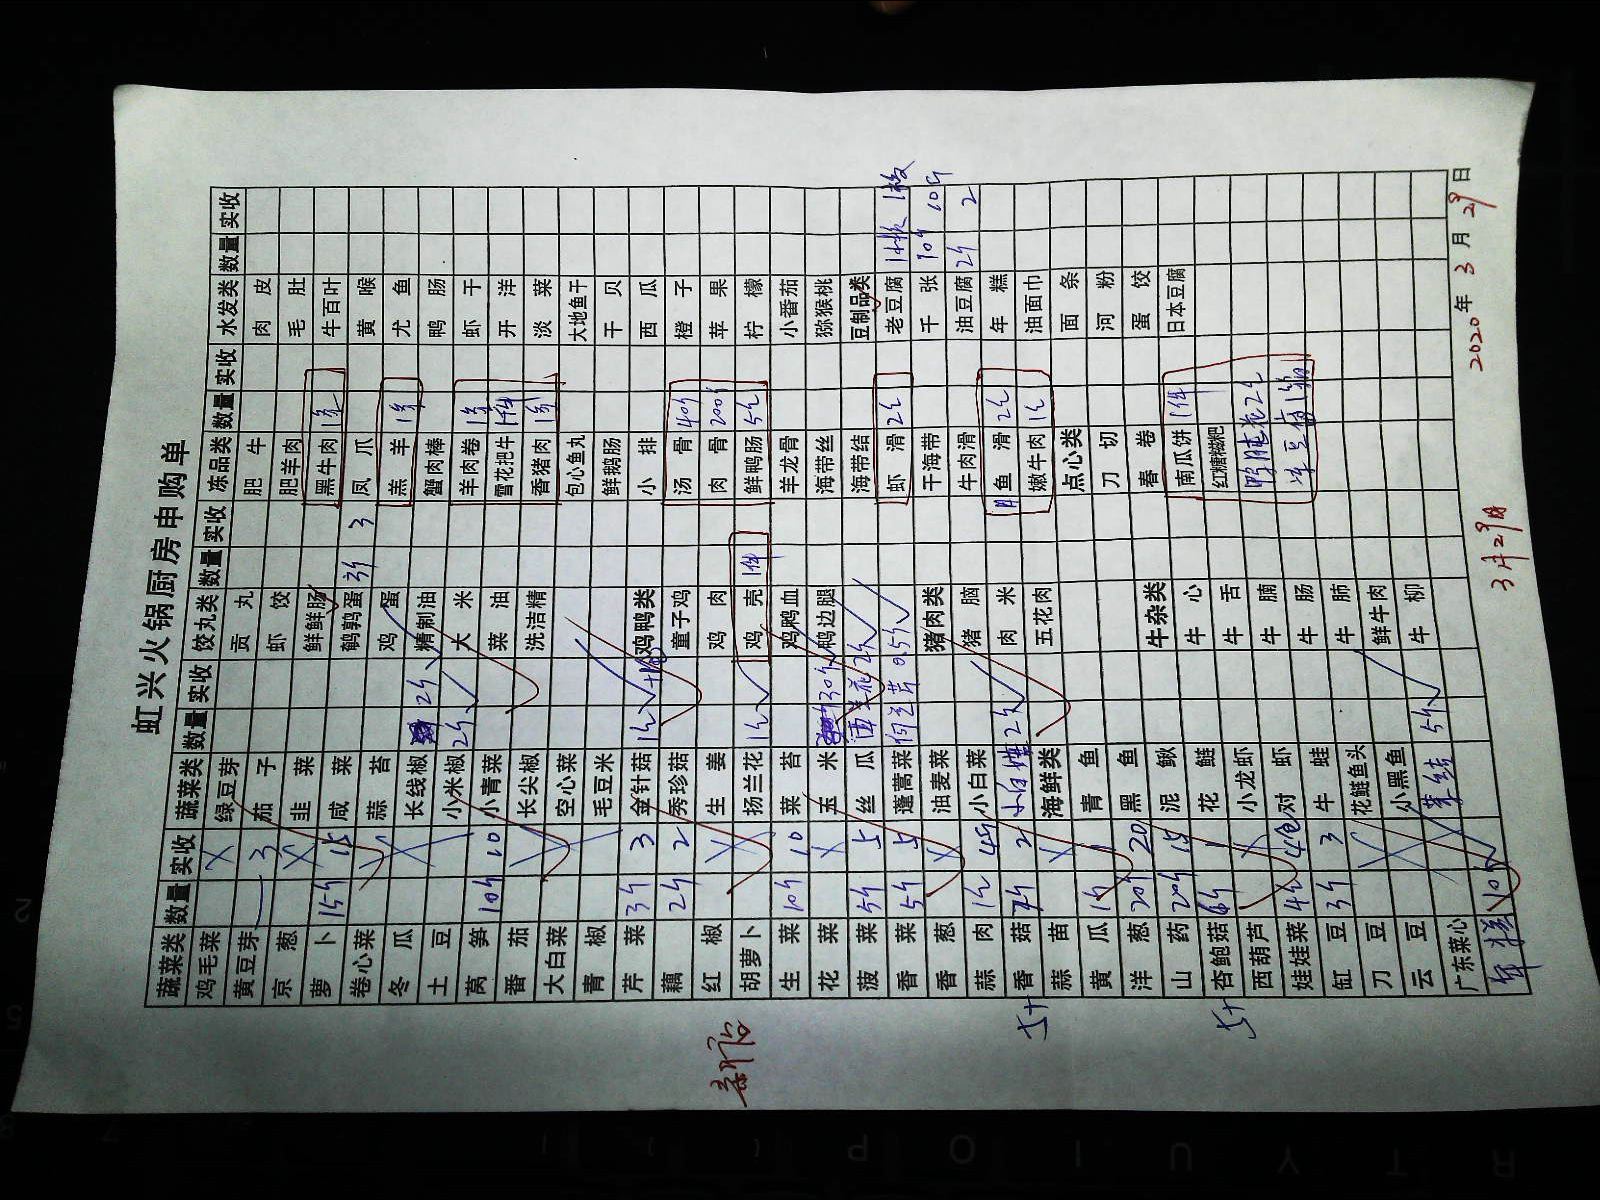 虹兴火锅厨房申购单
蔬菜类 数量 实收 蔬菜类 数量 实收 饺丸类 数量 实收 冻品类 数量 实收 水发类 数量 实收
鸡毛菜 绿豆芽 贡丸 肥牛 肉皮
黄豆芽 3 茄子 虾饺 肥羊肉 毛肚
京葱 韭菜 鲜鲜肠 黑牛肉 牛百叶
萝卜 15斤 15 咸菜 鹌鹑蛋 3斤 3 凤爪 黄喉
卷心菜 蒜苔 鸡蛋 羔羊 尤鱼
冬瓜 长线椒 2斤 精制油 蟹肉棒 鸭肠
土豆 小米椒 2斤 大米 羊肉卷 虾干
莴笋 10斤 10 小青菜 菜油 雪花把牛 1件 开洋
番茄 长尖椒 洗洁精 香猪肉 淡菜
大白菜 空心菜 包心鱼丸 大地鱼干
青椒 毛豆米 鲜鹅肠 干贝
芹菜 3斤 3 金针菇 鸡鸭类 小排 西瓜
藕 2斤 2 秀珍菇 童子鸡 汤骨 40斤 橙子
红椒 生姜 鸡肉 肉骨 200斤 苹果
胡萝卜 扬兰花 鸡壳 1件 鲜鸭肠 柠檬
生菜 10斤 10 菜苔 鸡鸭血 羊龙骨 小番茄
花菜 玉米 30斤 鸭边腿 海带丝 猕猴桃
菠菜 5斤 5 丝瓜 西兰花 2斤 海带结 豆制品类
香菜 5斤 5 蓬蒿菜 0.5斤 虾滑 老豆腐 1板
香葱 油麦菜 猪肉类 干海带 千张 10斤 10斤
蒜肉 小白菜 猪脑 牛肉滑 油豆腐 2斤 2
香菇 2 肉米 鱼滑 年糕
蒜苗 海鲜类 五花肉 嫩牛肉 油面巾
黄瓜 1斤 1 青鱼 点心类 面条
洋葱 20斤 20 黑鱼 刀切 河粉
山药 20斤 15 泥鳅 牛杂类 春卷 蛋饺
杏鲍菇 6斤 花鲢 牛心 南瓜饼 1件 日本豆腐
西葫芦 小龙虾 牛舌 红糖糍粑
娃娃菜 对虾 牛腩
缸豆 3斤 3 牛蛙 牛肠
刀豆 花鲢鱼头 牛肺
云豆 小黑鱼 鲜牛肉
广东菜心 5斤 牛柳
年糕 10斤
5斤
5斤
3月29日
2020年3月29日